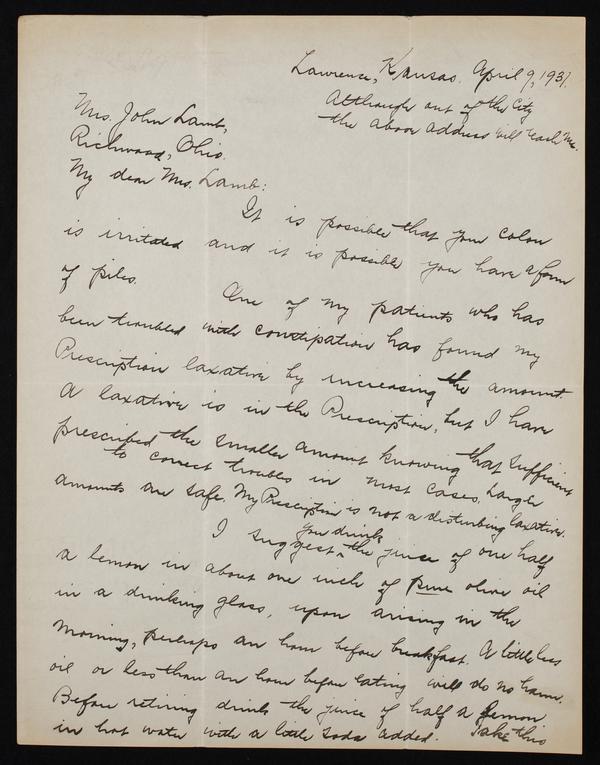 Lawrence, Kansas. April 9, 1937.
Although out of the City
the above address will reach me.
Mrs. John Lamb,
Richwood, Ohio.
My dear Mrs. Lamb:
It is possible that your colon
is irritated and it is possible you have a form
of piles.
One of my patients who has
been troubled with constipation has found my
Prescription laxative by increasing the amount.
A laxative is in the Prescription, but I have
prescribed the smaller amount knowing that sufficient
to correct troubles in most cases. Larger
amounts are safe. My Prescription is not a disturbing laxative.
I suggest you drink the juice of one half
a lemon in about one inch of pure olive oil
in a drinking glass, upon arising in the
morning, perhaps an hour before breakfast. A little less
oil or less than an hour before eating will do no harm.
Before retiring drink the juice of half a lemon
in hot water with a little soda added. Take this